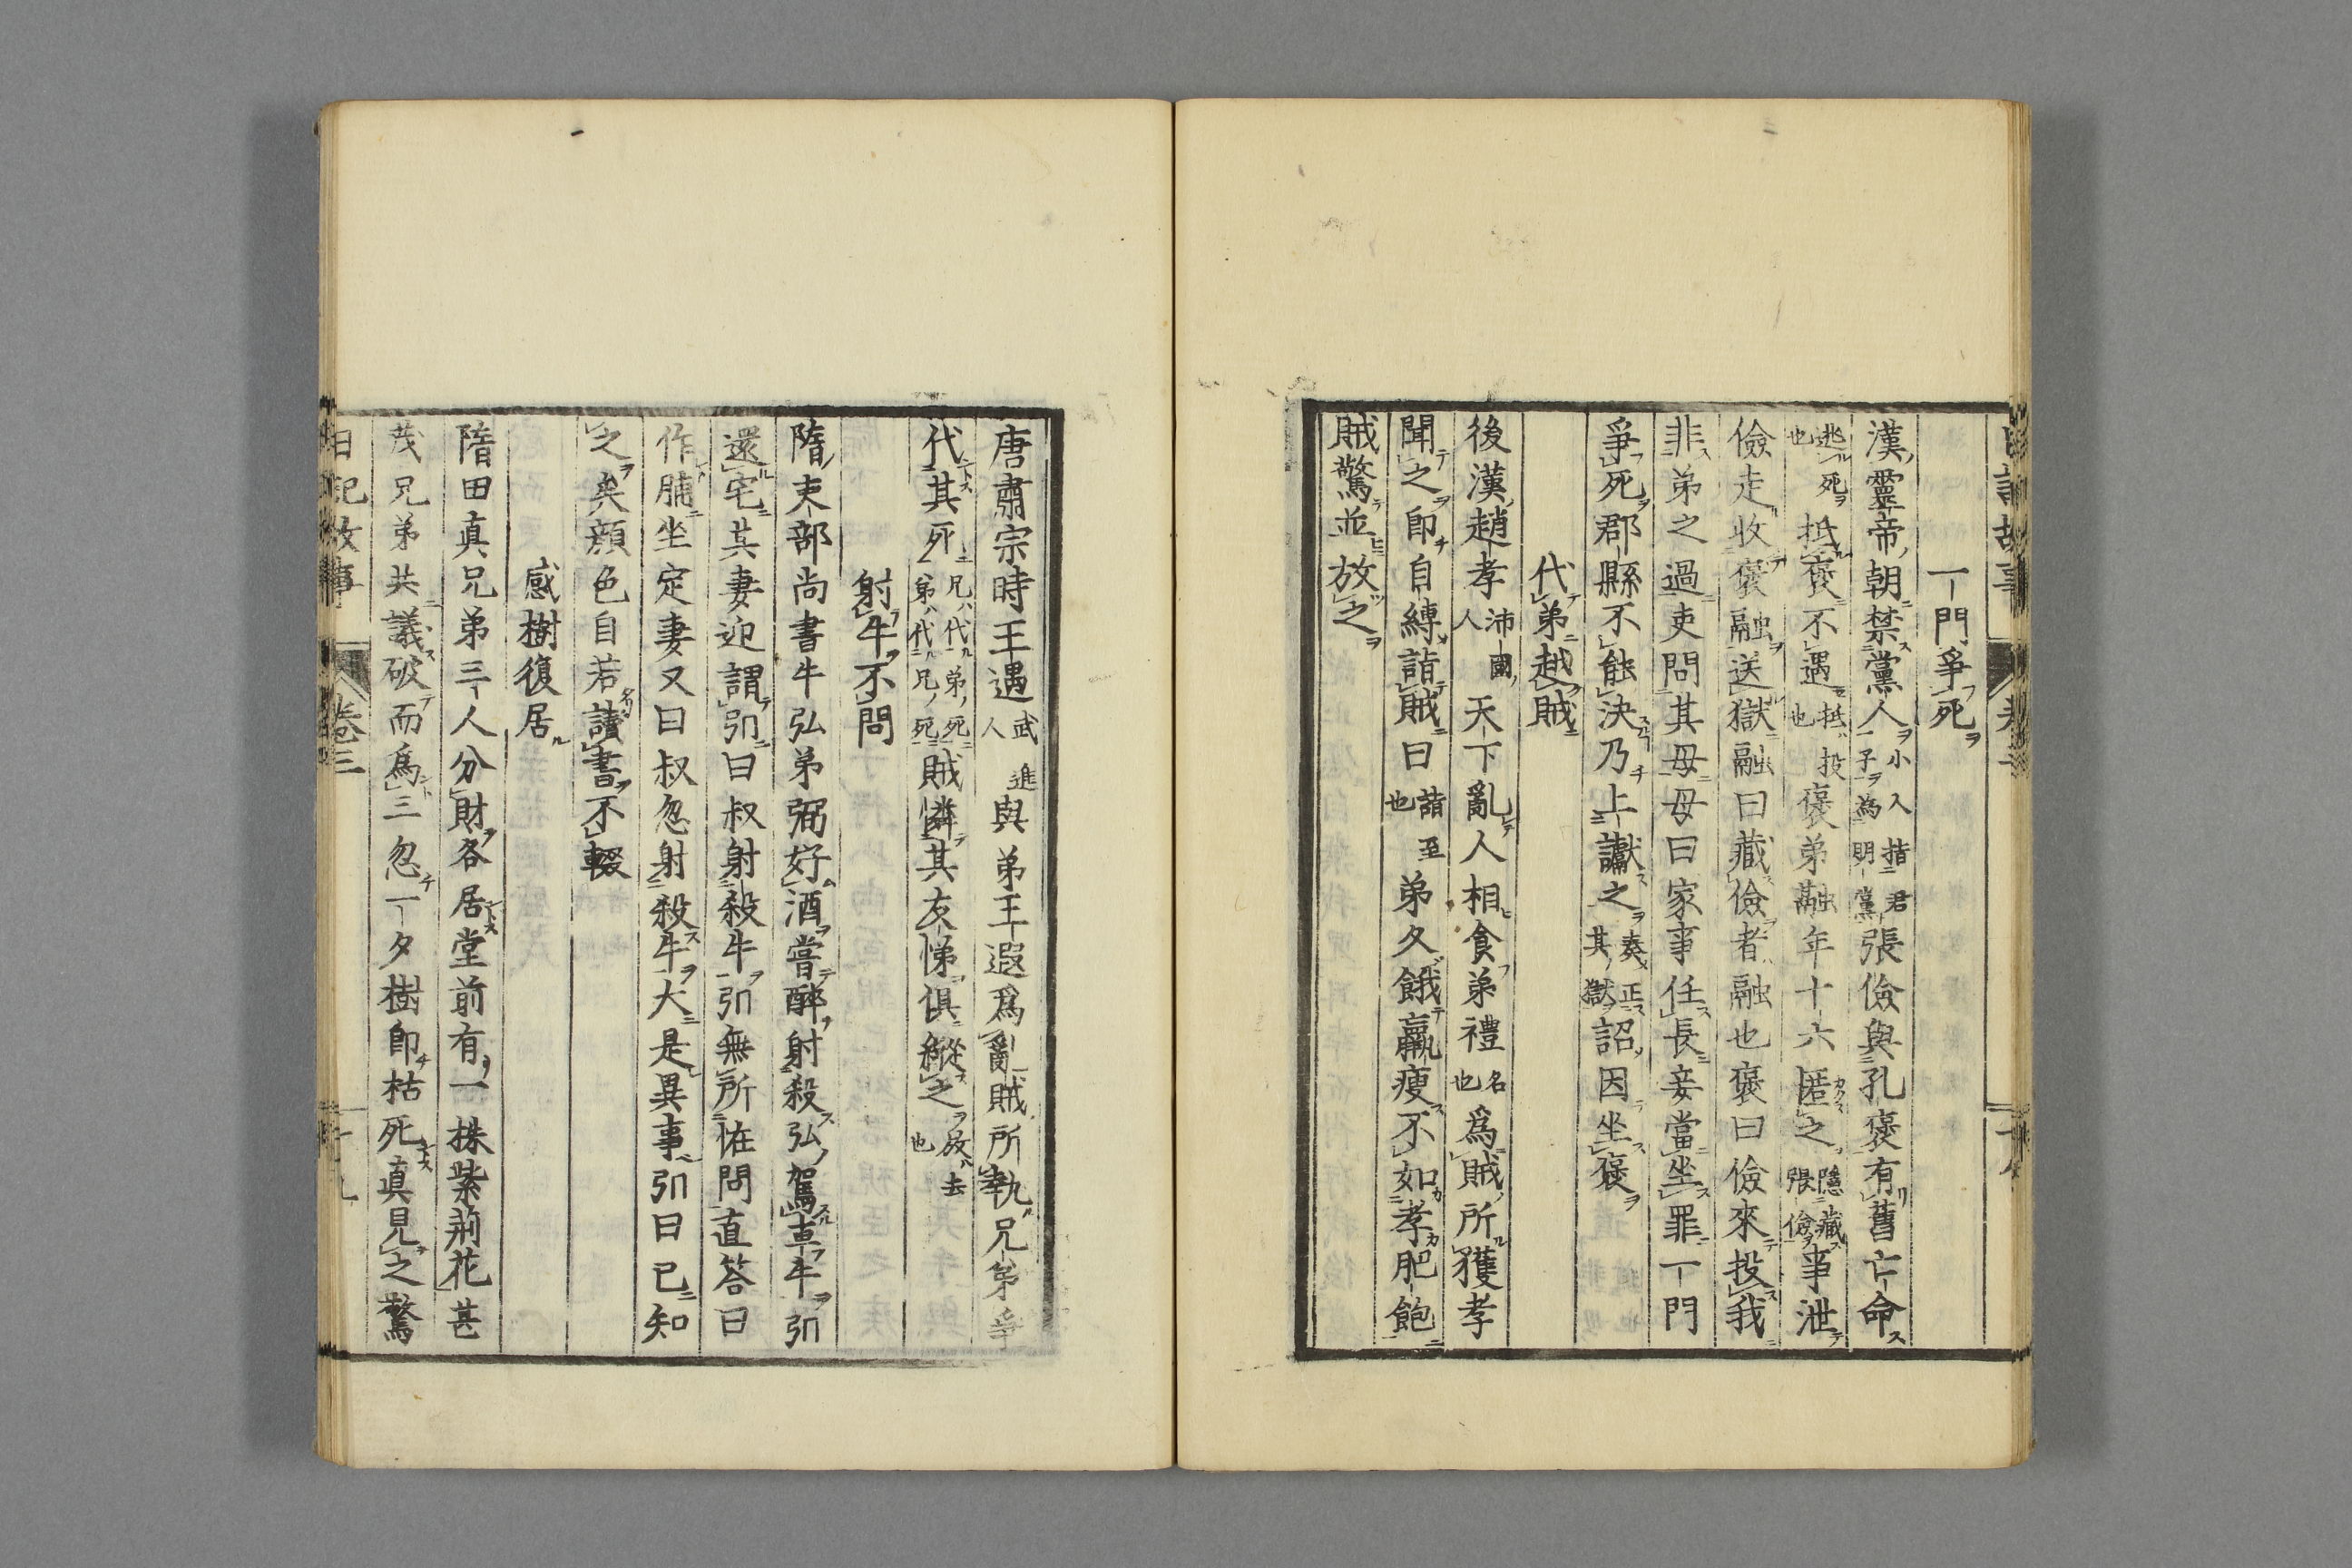 一門爭死
漢靈帝朝禁黨人小人指君子為明黨張儉與孔褒有舊亡命
逃死也抵褒不遇抵投也褒弟融年十六匿之隱藏張儉事泄
儉走收褒融送獄融曰藏儉者融也褒曰儉來投我
非弟之過吏問其母母曰家事任長妾當坐罪一門
爭死郡縣不能決乃上讞之奏正其獄詔因坐褒
代弟赴賊
後漢趙孝沛國人天下亂人相食弟禮名也為賊所獲孝
聞之即自縛詣賊曰詣至也弟久餓羸瘦不如孝肥飽
賊驚並放之
唐肅宗時王遇武進人與弟王遐爲亂賊所執兄弟爭
代其死兄代弟死弟代兄死賊憐其友悌俱縱之放去也
射牛不問
隋吏部尚書牛弘弟弼好酒嘗醉射殺弘駕車牛弘
還宅其妻迎謂弘曰叔射殺牛弘無所恠問直答曰
作脯坐定妻又曰叔忽射殺牛大是異事弘曰已知
之矣顔色自若讀書不輟
感樹復居
隋田真兄弟三人分財各居堂前有一株紫荊花甚
茂兄弟共議破而為三忽一夕樹即枯死真見之驚
日記故事 卷三